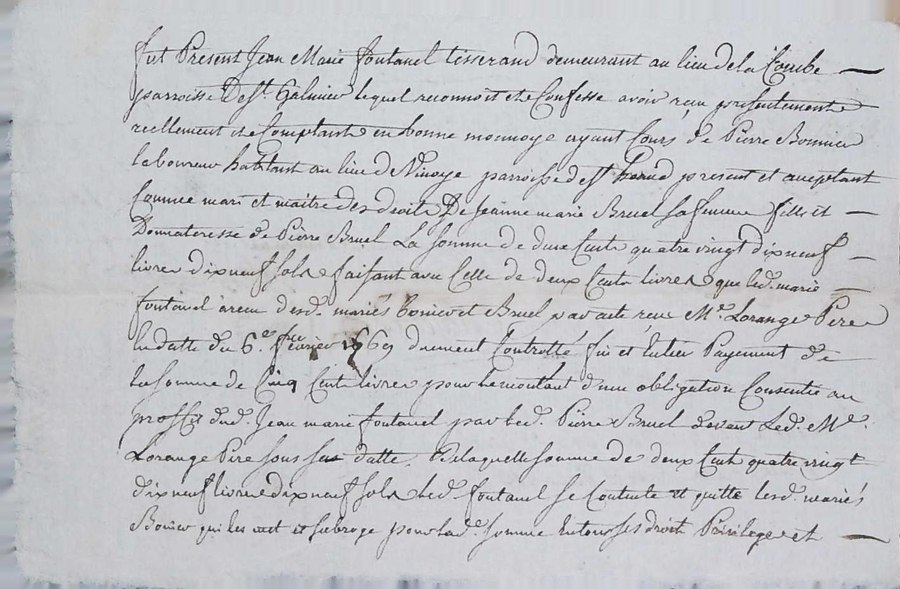 fut Present Jean Marie fontanel tisserand demeurant au lieu de la Combe
parroisse de st. Galmier lequel reconnoit et Confesse avoir reçu presentement
reellement et Comptant en bonne monnoye ayant Cours de Pierre Bonnier
laboureur habitant au lieu de parroisse de st present et aceptant
Comme mari et maitre des droits De Jeanne marie Bruel sa femme fille et
Donnateresse de Pierre Bruel La somme de deux Cents quatre vingt dix neuf
livres dix neuf sols faisant avec Celle de deux Cents livres que led. marie
fontanel a recu desd. mariés Bonier et Bruel par acte recu Me. Lorange Pere
en datte du 6e. fevrier 1769 duement Controllé fin et Entier Payement de
la somme de Cinq Cents livres pour le montant d'une obligation Consentie au
proffit dud. Jean marie fontanel par led. Pierre Bruel devant Led. Me.
Lorange Pere sous sa datte, De laquelle somme de deux Cents quatre vingt
dix neuf livres dix neuf sols led. fontanel se Contente et quitte lesd. mariés
Bonier qu'il met et subroge pour lad. somme En tous ses droit Privilege et